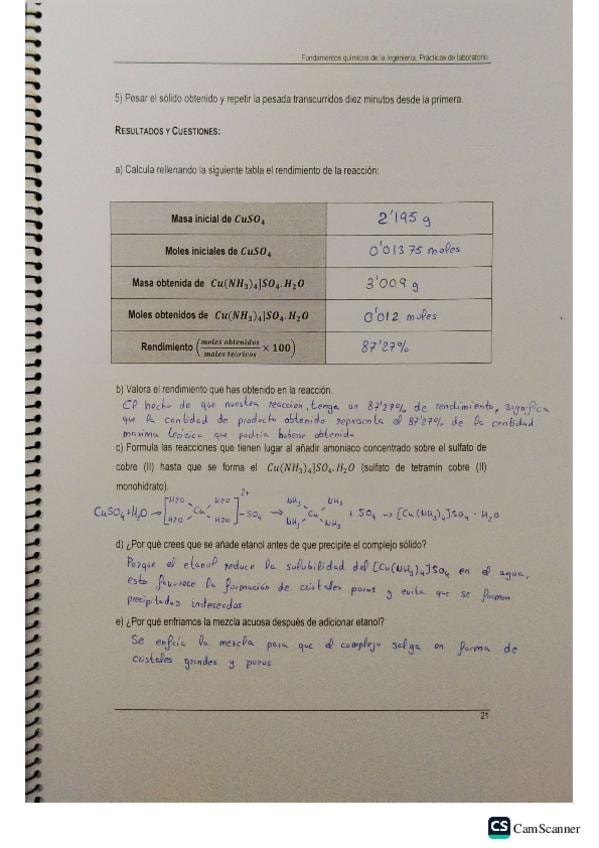 Fundamentos químicos de la ingeniería. Prácticas de laboratorio
5) Pesar el sólido obtenido y repetir la pesada transcurridos diez minutos desde la primera.
RESULTADOS Y CUESTIONES:
a) Calcula rellenando la siguiente tabla el rendimiento de la reacción:
Masa inicial de CuSO₄ 2'195 g
Moles iniciales de CuSO₄ 0'01375 moles
Masa obtenida de Cu(NH₃)₄]SO₄.H₂O 3'009 g
Moles obtenidos de Cu(NH₃)₄]SO₄.H₂O 0'012 moles
Rendimiento (moles obtenidos/moles teóricos × 100) 87'27%
b) Valora el rendimiento que has obtenido en la reacción.
El hecho de que nuestra reacción, tenga un 87'27% de rendimiento, significa
que la cantidad de producto obtenido representa el 87'27% de la cantidad
maxima teórica que podría haberse obtenido
c) Formula las reacciones que tienen lugar al añadir amoniaco concentrado sobre el sulfato de
cobre (II) hasta que se forma el Cu(NH₃)₄]SO₄.H₂O (sulfato de tetramin cobre (II)
monohidrato).
CuSO₄+H₂O → [H2O H2O Cu H2O H2O]²⁺ -SO₄ → NH₃ NH₃ Cu NH₃ NH₃ + SO₄ → [Cu(NH₃)₄]SO₄ · H₂O
d) ¿Por qué crees que se añade etanol antes de que precipite el complejo sólido?
Porque el etanol reduce la solubilidad del [Cu(NH₃)₄]SO₄ en el agua,
esto favorece la formación de cristales puros y evita que se formen
precipitados indeseados
e) ¿Por qué enfriamos la mezcla acuosa después de adicionar etanol?
Se enfría la mezcla para que el complejo salga en forma de
cristales grandes y puros
21
CS CamScanner